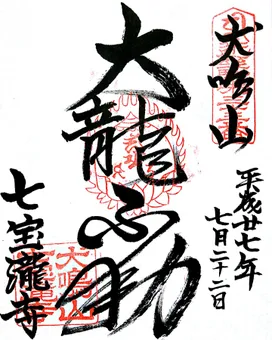 犬鳴山
平成廿七年
七月二十二日
大龍不動
七宝瀧寺
犬鳴山